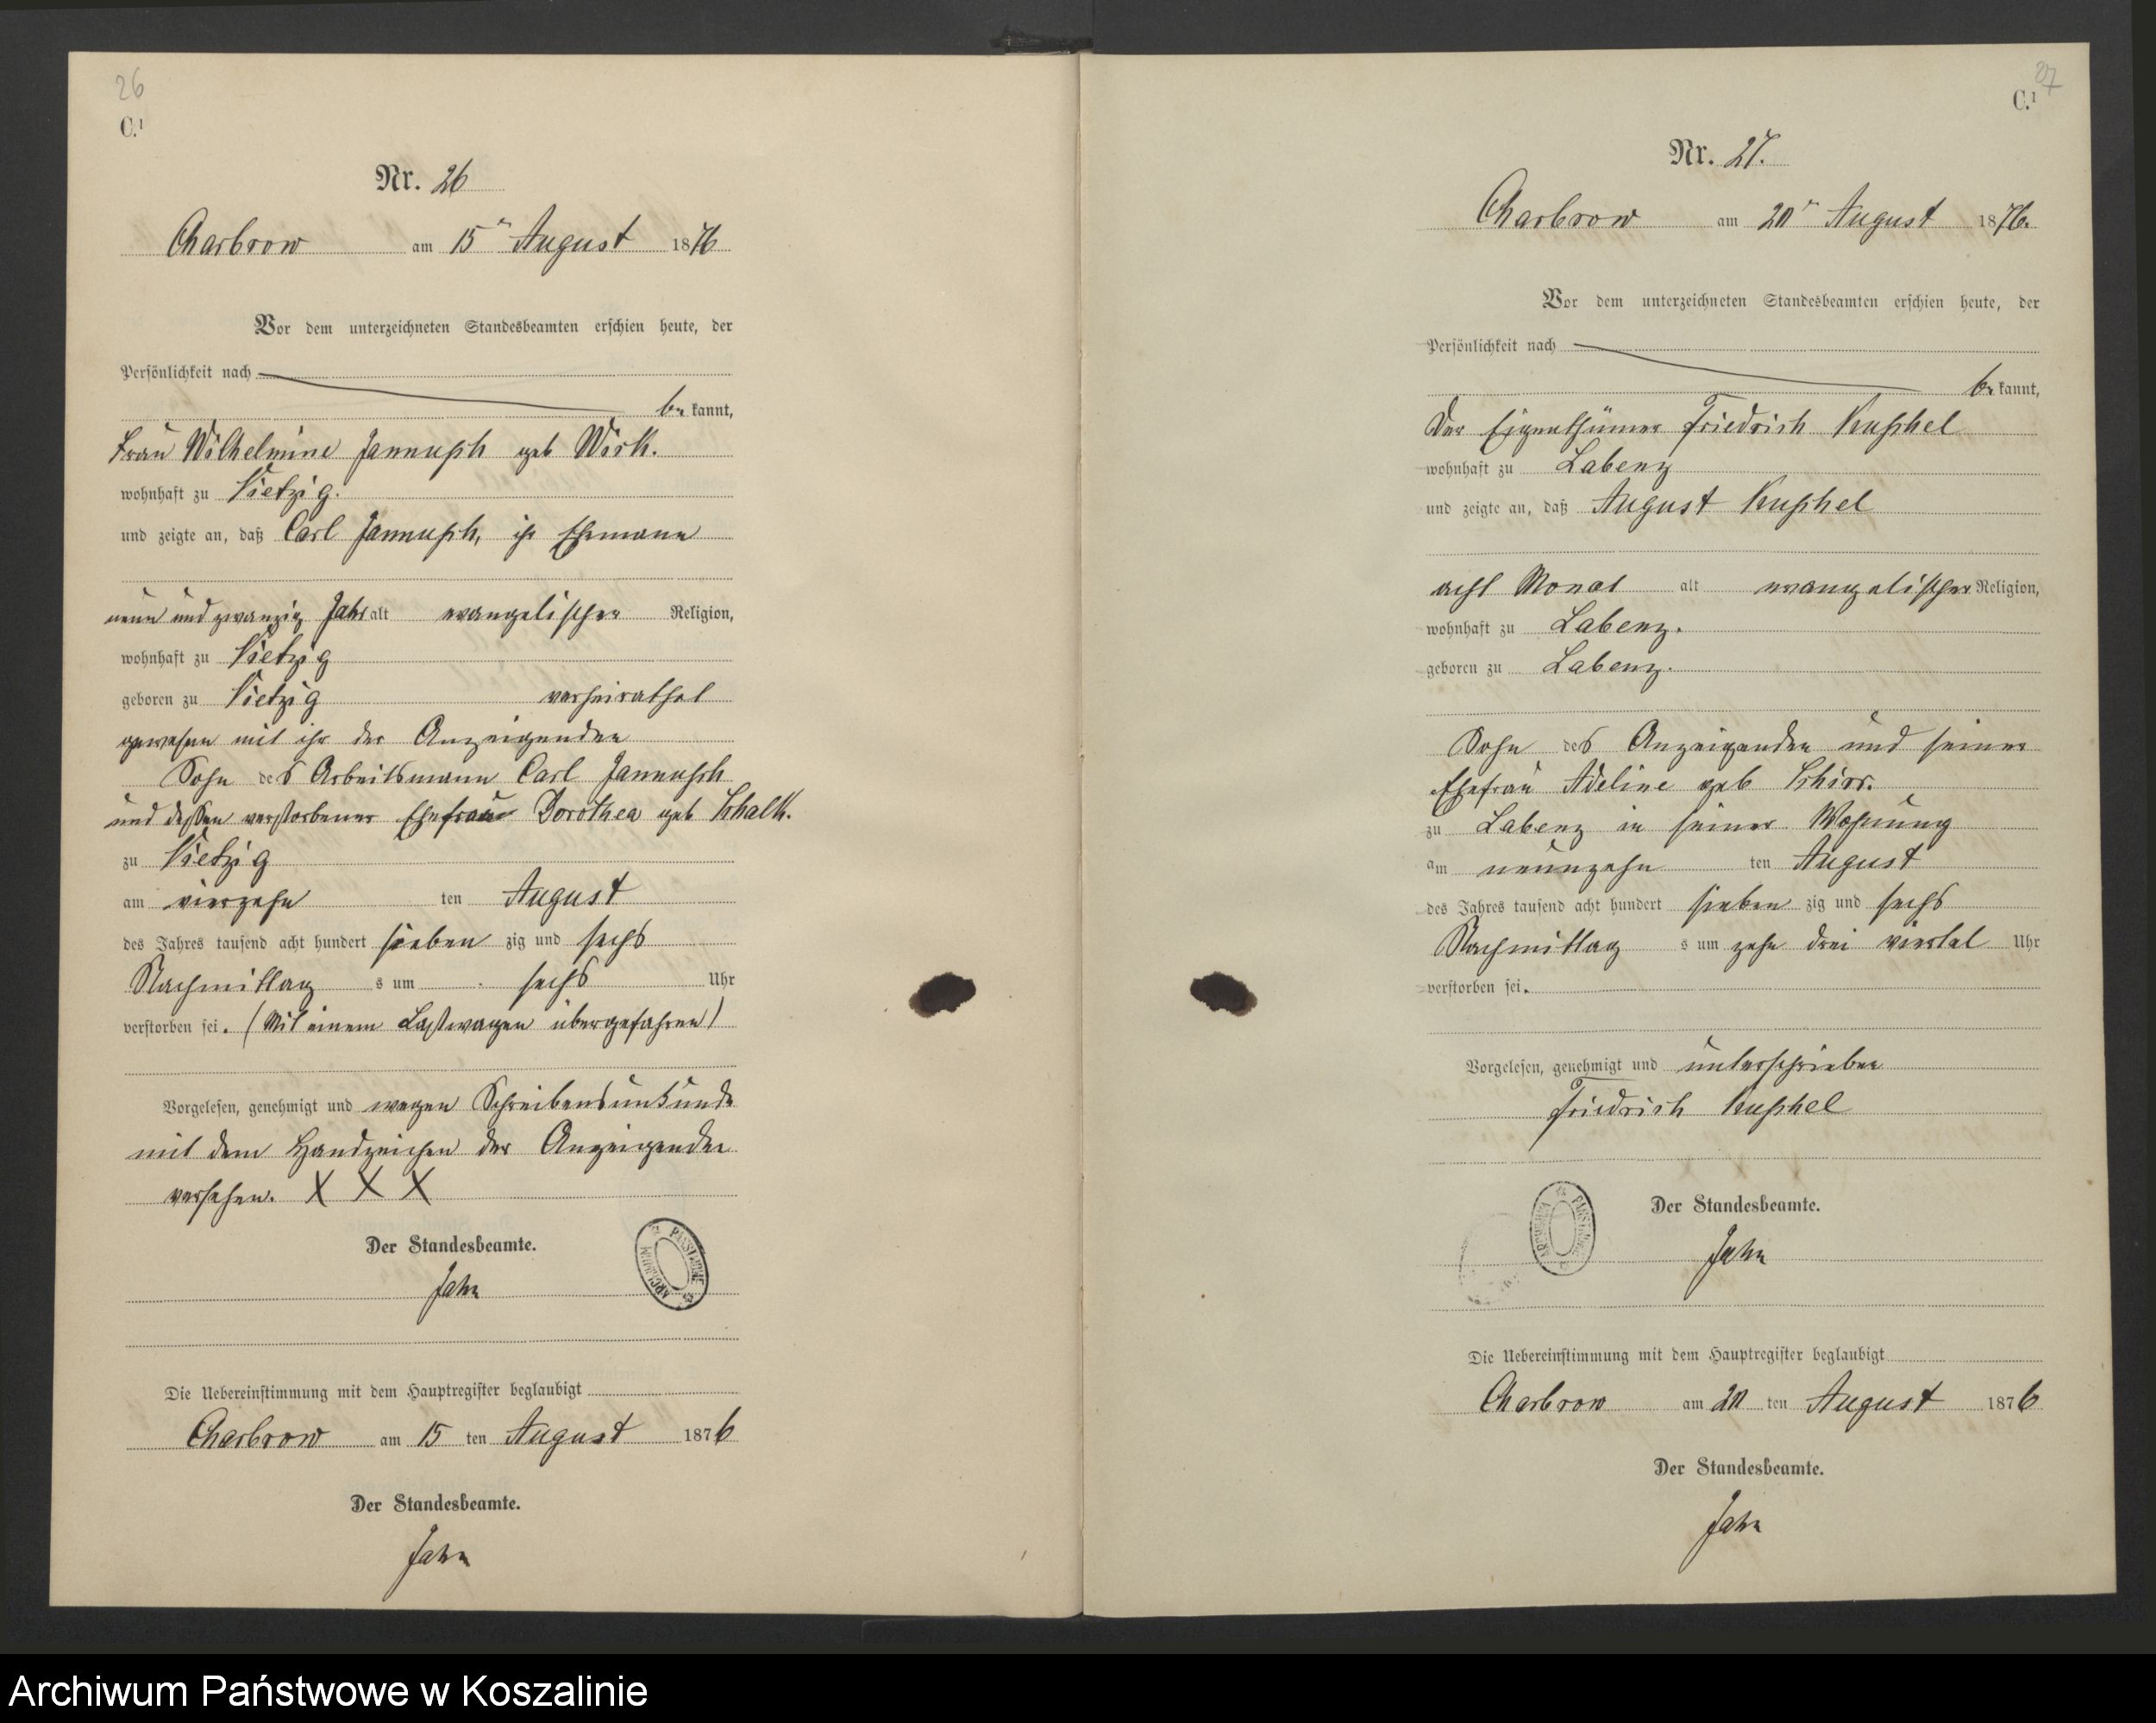 26
C.¹
Nr. 26
Charbrow am 15ⁿ August 1876
Vor dem unterzeichneten Standesbeamten erschien heute, der
Persönlichkeit nach
be kannt,
Frau Wilhelmine Jannusch geb Wirk.
wohnhaft zu Vietzig.
und zeigte an, daß Carl Jannusch, ihr Ehemann
neun und zwanzig Jahr alt evangelischer Religion,
wohnhaft zu Vietzig
geboren zu Vietzig verheirathet
gewesen mit ihr der Anzeigenden
Sohn des Arbeitsmann Carl Jannusch
und dessen verstorbener Ehefrau Dorothea geb Schalk.
zu Vietzig
am vierzehn ten August
des Jahres tausend acht hundert sieben zig und sechs
Nachmittag s um sechs Uhr
verstorben sei. (Mit einem Lastwagen übergefahren)
Vorgelesen, genehmigt und wegen Schreibensunkunde
mit dem Handzeichen der Anzeigenden
versehen. X X X
Der Standesbeamte.
Jahn
ARCHIWUM PAŃSTWOWE
Die Uebereinstimmung mit dem Hauptregister beglaubigt
Charbrow am 15 ten August 1876
Der Standesbeamte.
Jahn
27
C.¹
Nr. 27.
Charbrow am 20ⁿ August 1876.
Vor dem unterzeichneten Standesbeamten erschien heute, der
Persönlichkeit nach
be kannt,
Der Eigenthümer Friedrich Kuschel
wohnhaft zu Labenz
und zeigte an, daß August Kuschel
acht Monat alt evangelischer Religion,
wohnhaft zu Labenz.
geboren zu Labenz.
Sohn des Anzeigenden und seiner
Ehefrau Adeline geb Schirr.
zu Labenz in seiner Wohnung
am neunzehn ten August
des Jahres tausend acht hundert sieben zig und sechs
Nachmittag s um zehn drei viertel Uhr
verstorben sei.
Vorgelesen, genehmigt und unterschrieben
Friedrich Kuschel
Der Standesbeamte.
Jahn
Die Uebereinstimmung mit dem Hauptregister beglaubigt
Charbrow am 20 ten August 1876
Der Standesbeamte.
Jahn
Archiwum Państwowe w Koszalinie